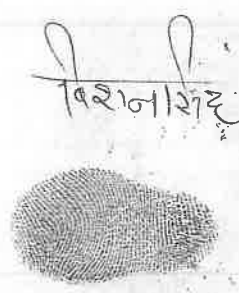 विशनसिंह